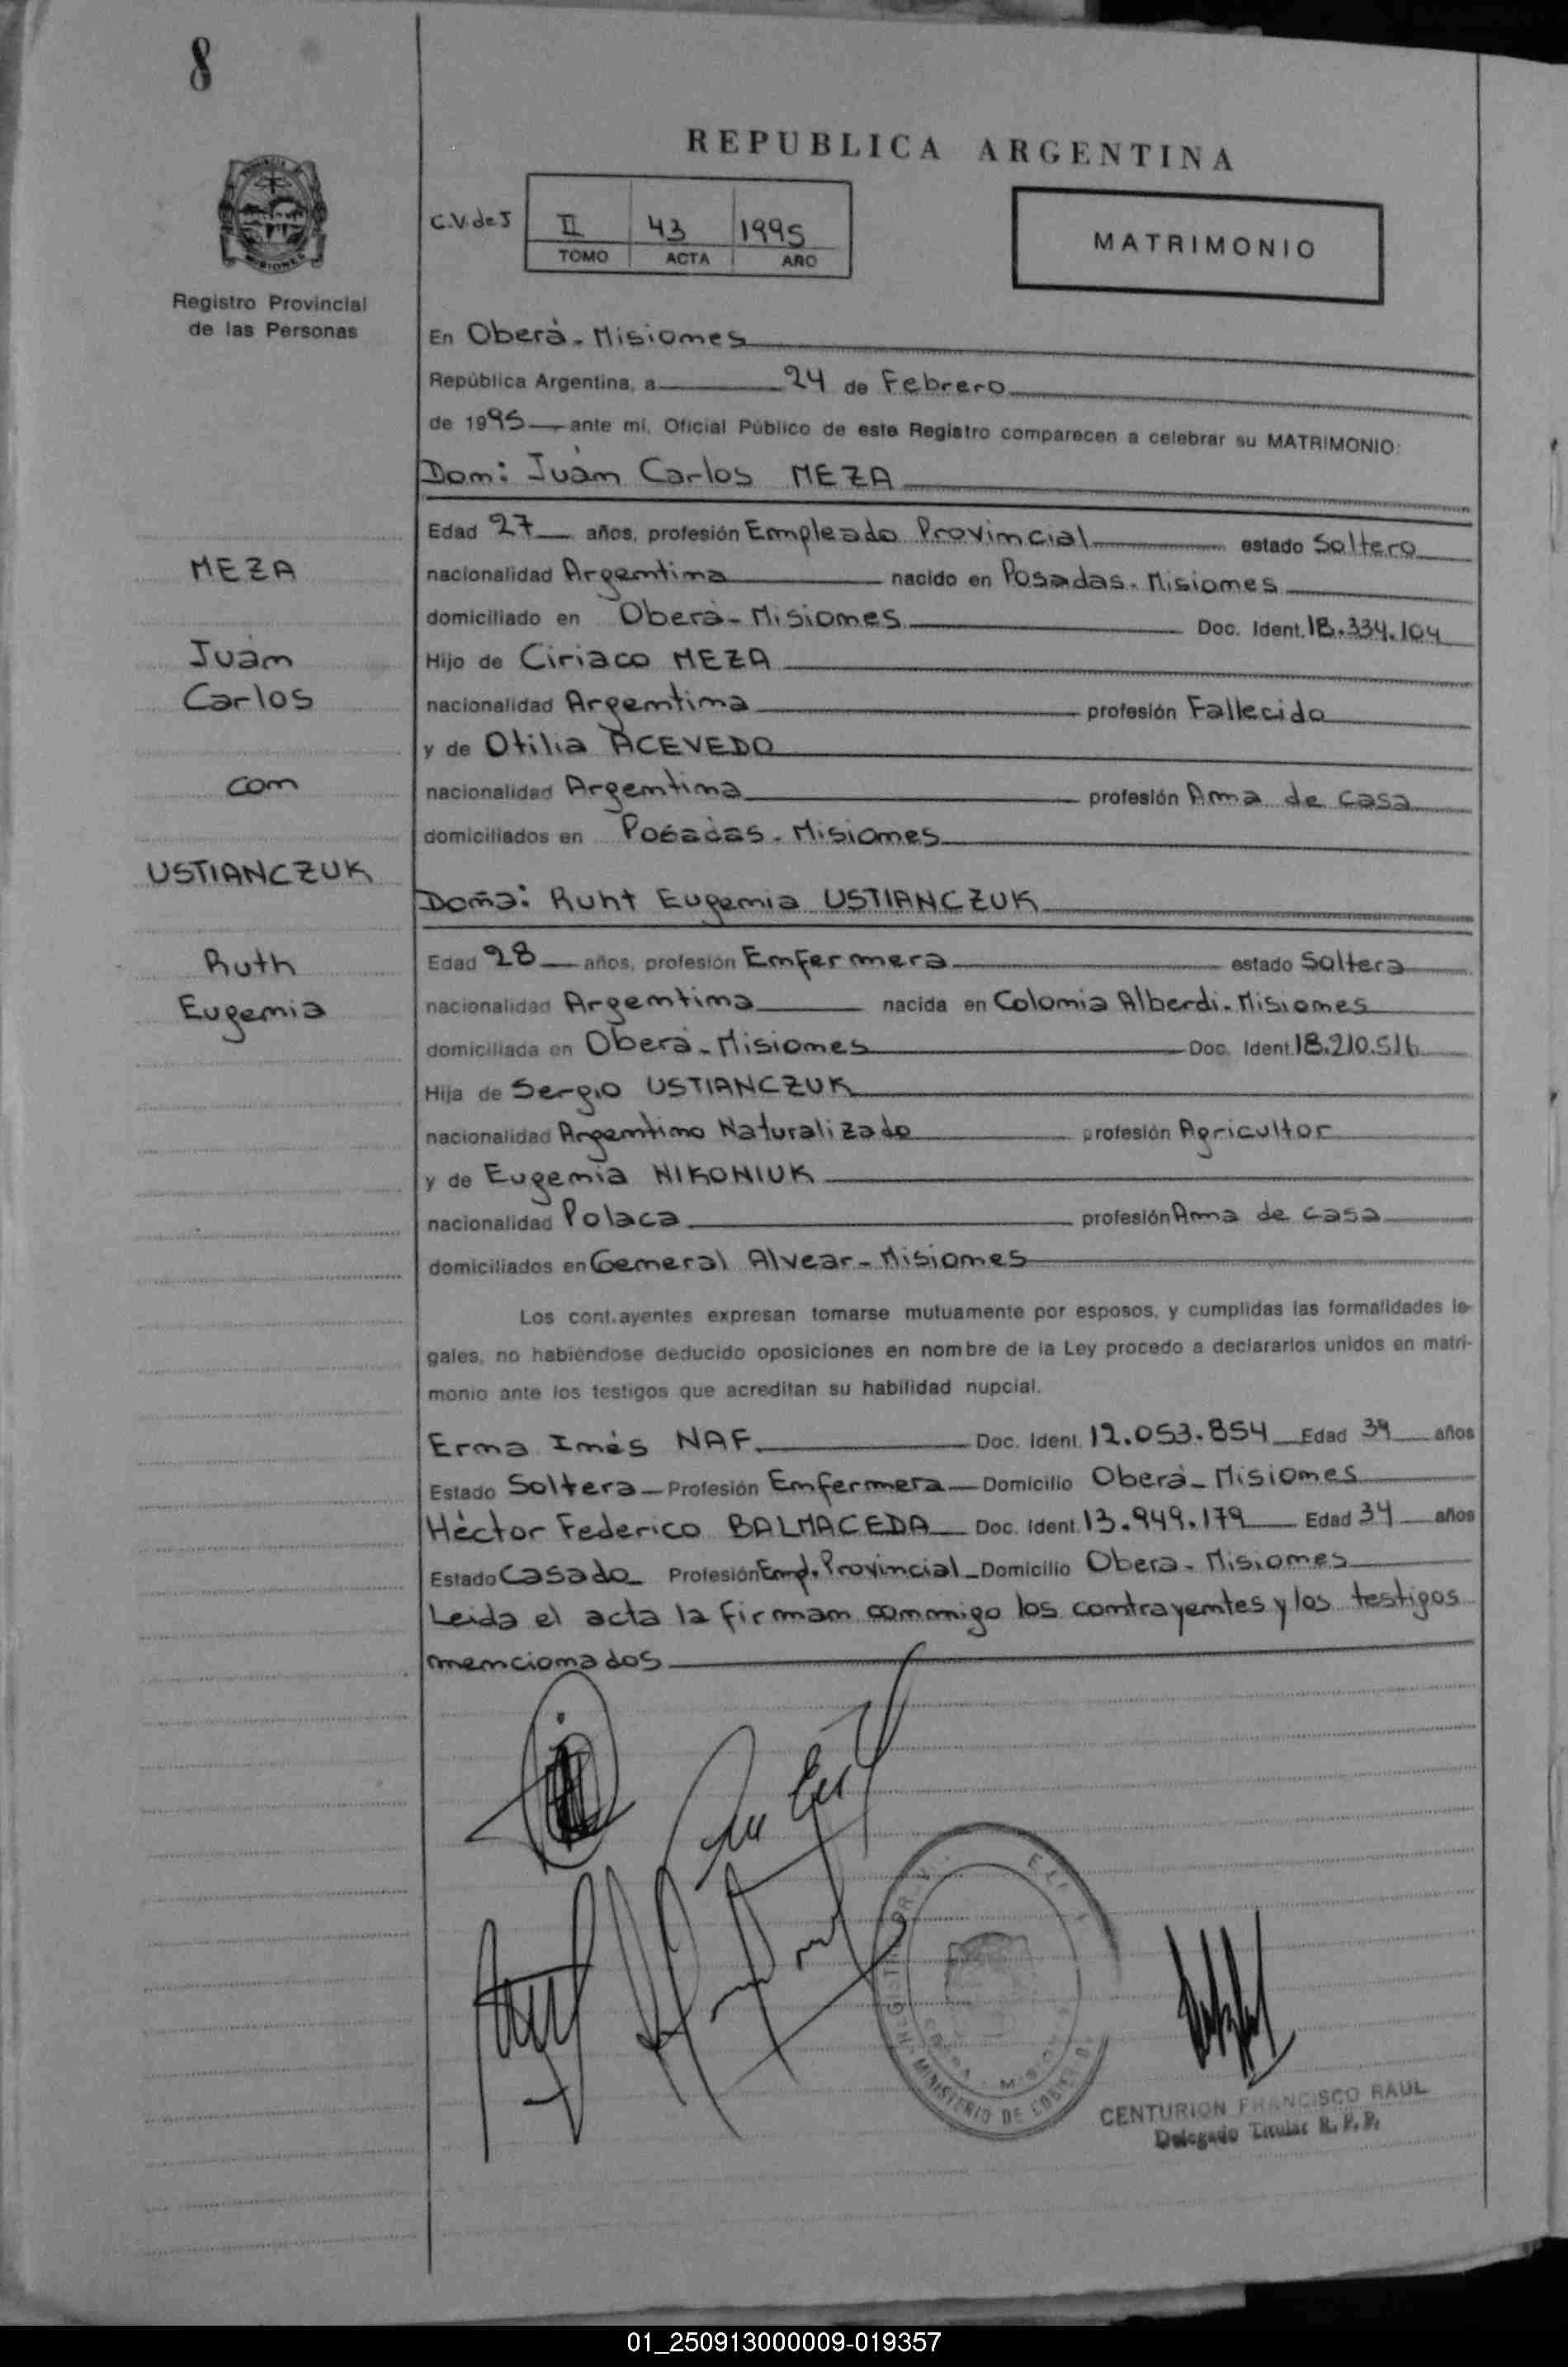 8
REPUBLICA ARGENTINA
C.V.de J II 43 1995
TOMO ACTA AÑO
MATRIMONIO
MISIONES
Registro Provincial
de las Personas
En Oberá - Misiones
República Argentina, a 24 de Febrero
de 1995 ante mi, Oficial Público de este Registro comparecen a celebrar su MATRIMONIO:
Don: Juán Carlos MEZA
Edad 27 años, profesión Empleado Provincial estado Soltero
MEZA
nacionalidad Argentina nacido en Posadas - Misiones
domiciliado en Oberá - Misiones Doc. Ident. 18.334.104
Juán
Hijo de Ciriaco MEZA
Carlos
nacionalidad Argentina profesión Fallecido
y de Otilia ACEVEDO
con
nacionalidad Argentina profesión Ama de casa
domiciliados en Posadas - Misiones
USTIANCZUK
Doña: Ruht Eugenia USTIANCZUK
Ruth
Edad 28 años, profesión Enfermera estado Soltera
Eugenia
nacionalidad Argentina nacida en Colonia Alberdi - Misiones
domiciliada en Oberá - Misiones Doc. Ident. 18.210.516
Hija de Sergio USTIANCZUK
nacionalidad Argentino Naturalizado profesión Agricultor
y de Eugenia NIKONIUK
nacionalidad Polaca profesión Ama de casa
domiciliados en General Alvear - Misiones
Los cont.ayentes expresan tomarse mutuamente por esposos, y cumplidas las formalidades le-
gales, no habiéndose deducido oposiciones en nombre de la Ley procedo a declararlos unidos en matri-
monio ante los testigos que acreditan su habilidad nupcial.
Erma Inés NAF Doc. Ident. 12.053.854 Edad 34 años
Estado Soltera Profesión Enfermera Domicilio Oberá - Misiones
Héctor Federico BALMACEDA Doc. Ident. 13.949.179 Edad 34 años
Estado Casado Profesión Emp. Provincial Domicilio Obera - Misiones
Leida el acta la firman conmigo los contrayentes y los testigos
mencionados
MINISTERIO DE GOBIERNO
CENTURION FRANCISCO RAUL
Delegado Titular R. P. P.
01_250913000009-019357